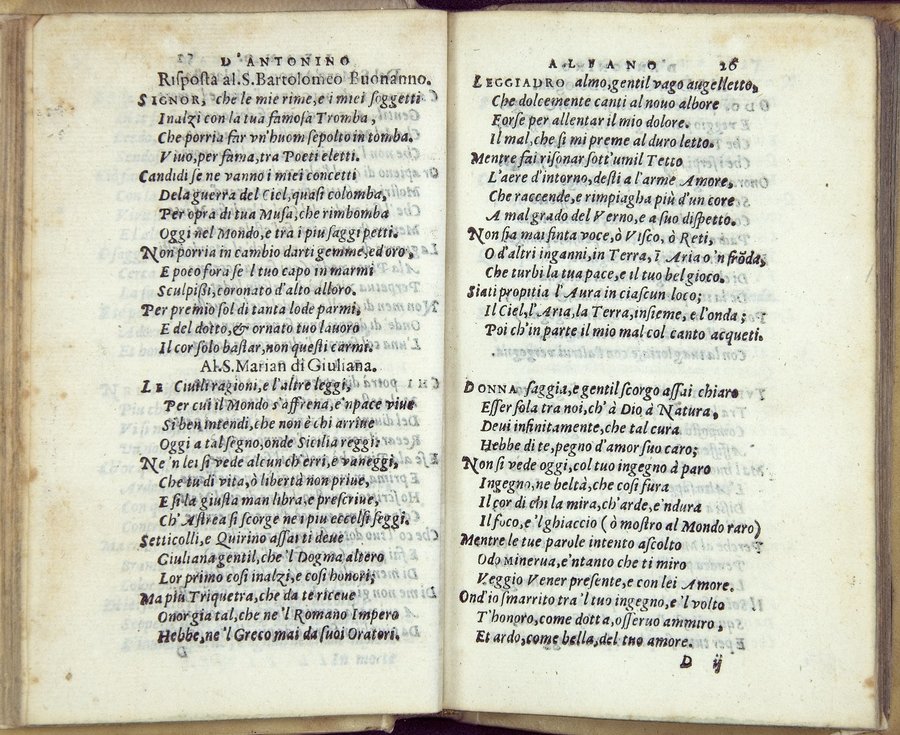 D'ANTONINO
Risposta al.S.Bartolomeo Buonanno.
SIGNOR, che le mie rime, e i miei soggetti
Inalzi con la tua famosa Tromba,
Che porria far vn'huom sepolto in tomba.
Viuo, per fama, tra Poeti eletti.
Candidi se ne vanno i miei concetti
Dela guerra del Ciel, quasi colomba,
Per opra di tua Musa, che rimbomba
Oggi nel Mondo, e tra i piu saggi petti.
Non porria in cambio darti gemme, ed oro,
E poco fora se'l tuo capo in marmi
Sculpißi, coronato d'alto alloro.
Per premio sol di tanta lode parmi,
E del dotto, & ornato tuo lauoro
Il cor solo bastar, non questi carmi.
Al.S.Marian di Giuliana.
LE Ciuili ragioni, e l'altre leggi,
Per cui il Mondo s'affrena, e'n pace viue
Si ben intendi, che non è chi arriue
Oggi a tal segno, onde Sicilia reggi:
Ne'n lei si vede alcun ch'erri, e vaneggi,
Che tu di vita, ò libertà non priue,
E si la giusta man libra, e prescriue,
Ch'Astrea si scorge ne i piu eccelsi seggi.
Setticolli, e Quirino assai ti deue
Giuliana gentil, che'l Dogma altero
Lor primo cosi inalzi, e cosi honori;
Ma piu Triquetra, che da te riceue
Onor gia tal, che ne'l Romano Impero
Hebbe, ne'l Greco mai da suoi Oratori.
D
ALFANO 26
LEGGIADRO almo, gentil vago augelletto,
Che dolcemente canti al nouo albore
Forse per allentar il mio dolore.
Il mal, che si mi preme al duro letto.
Mentre fai risonar sott'umil Tetto
L'aere d'intorno, desti a l'arme Amore,
Che raccende, e rimpiagha più d'un core
A mal grado del Verno, e a suo dispetto.
Non sia mai finta voce, ò Visco, ò Reti,
O d'altri inganni, in Terra, ī Aria o'n frōda,
Che turbi la tua pace, e il tuo bel gioco.
Siati propitia l'Aura in ciascun loco;
Il Ciel, l'Aria, la Terra, insieme, e l'onda;
Poi ch'in parte il mio mal col canto acqueti.
DONNA saggia, e gentil scorgo assai chiaro
Esser sola tra noi, ch'à Dio, à Natura,
Deui infinitamente, che tal cura
Hebbe di te, pegno d'amor suo caro;
Non si vede oggi, col tuo ingegno à paro
Ingegno, ne beltà, che cosi fura
Il cor di chi la mira, ch'arde, e'ndura
Il foco, e'l ghiaccio (ò mostro al Mondo raro)
Mentre le tue parole intento ascolto
Odo Minerua, e'ntanto che ti miro
Veggio Vener presente, e con lei Amore.
Ond'io smarrito tra'l tuo ingegno, e'l volto
T'honoro, come dotta, osseruo ammiro,
Et ardo, come bella, del tuo amore.
D ij